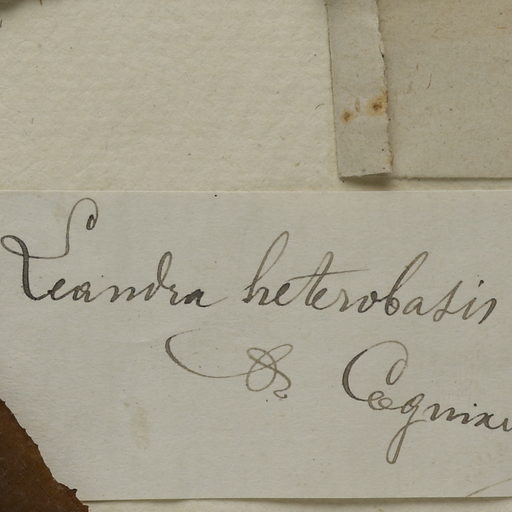 Leandra heterobasis
& Cogniaux